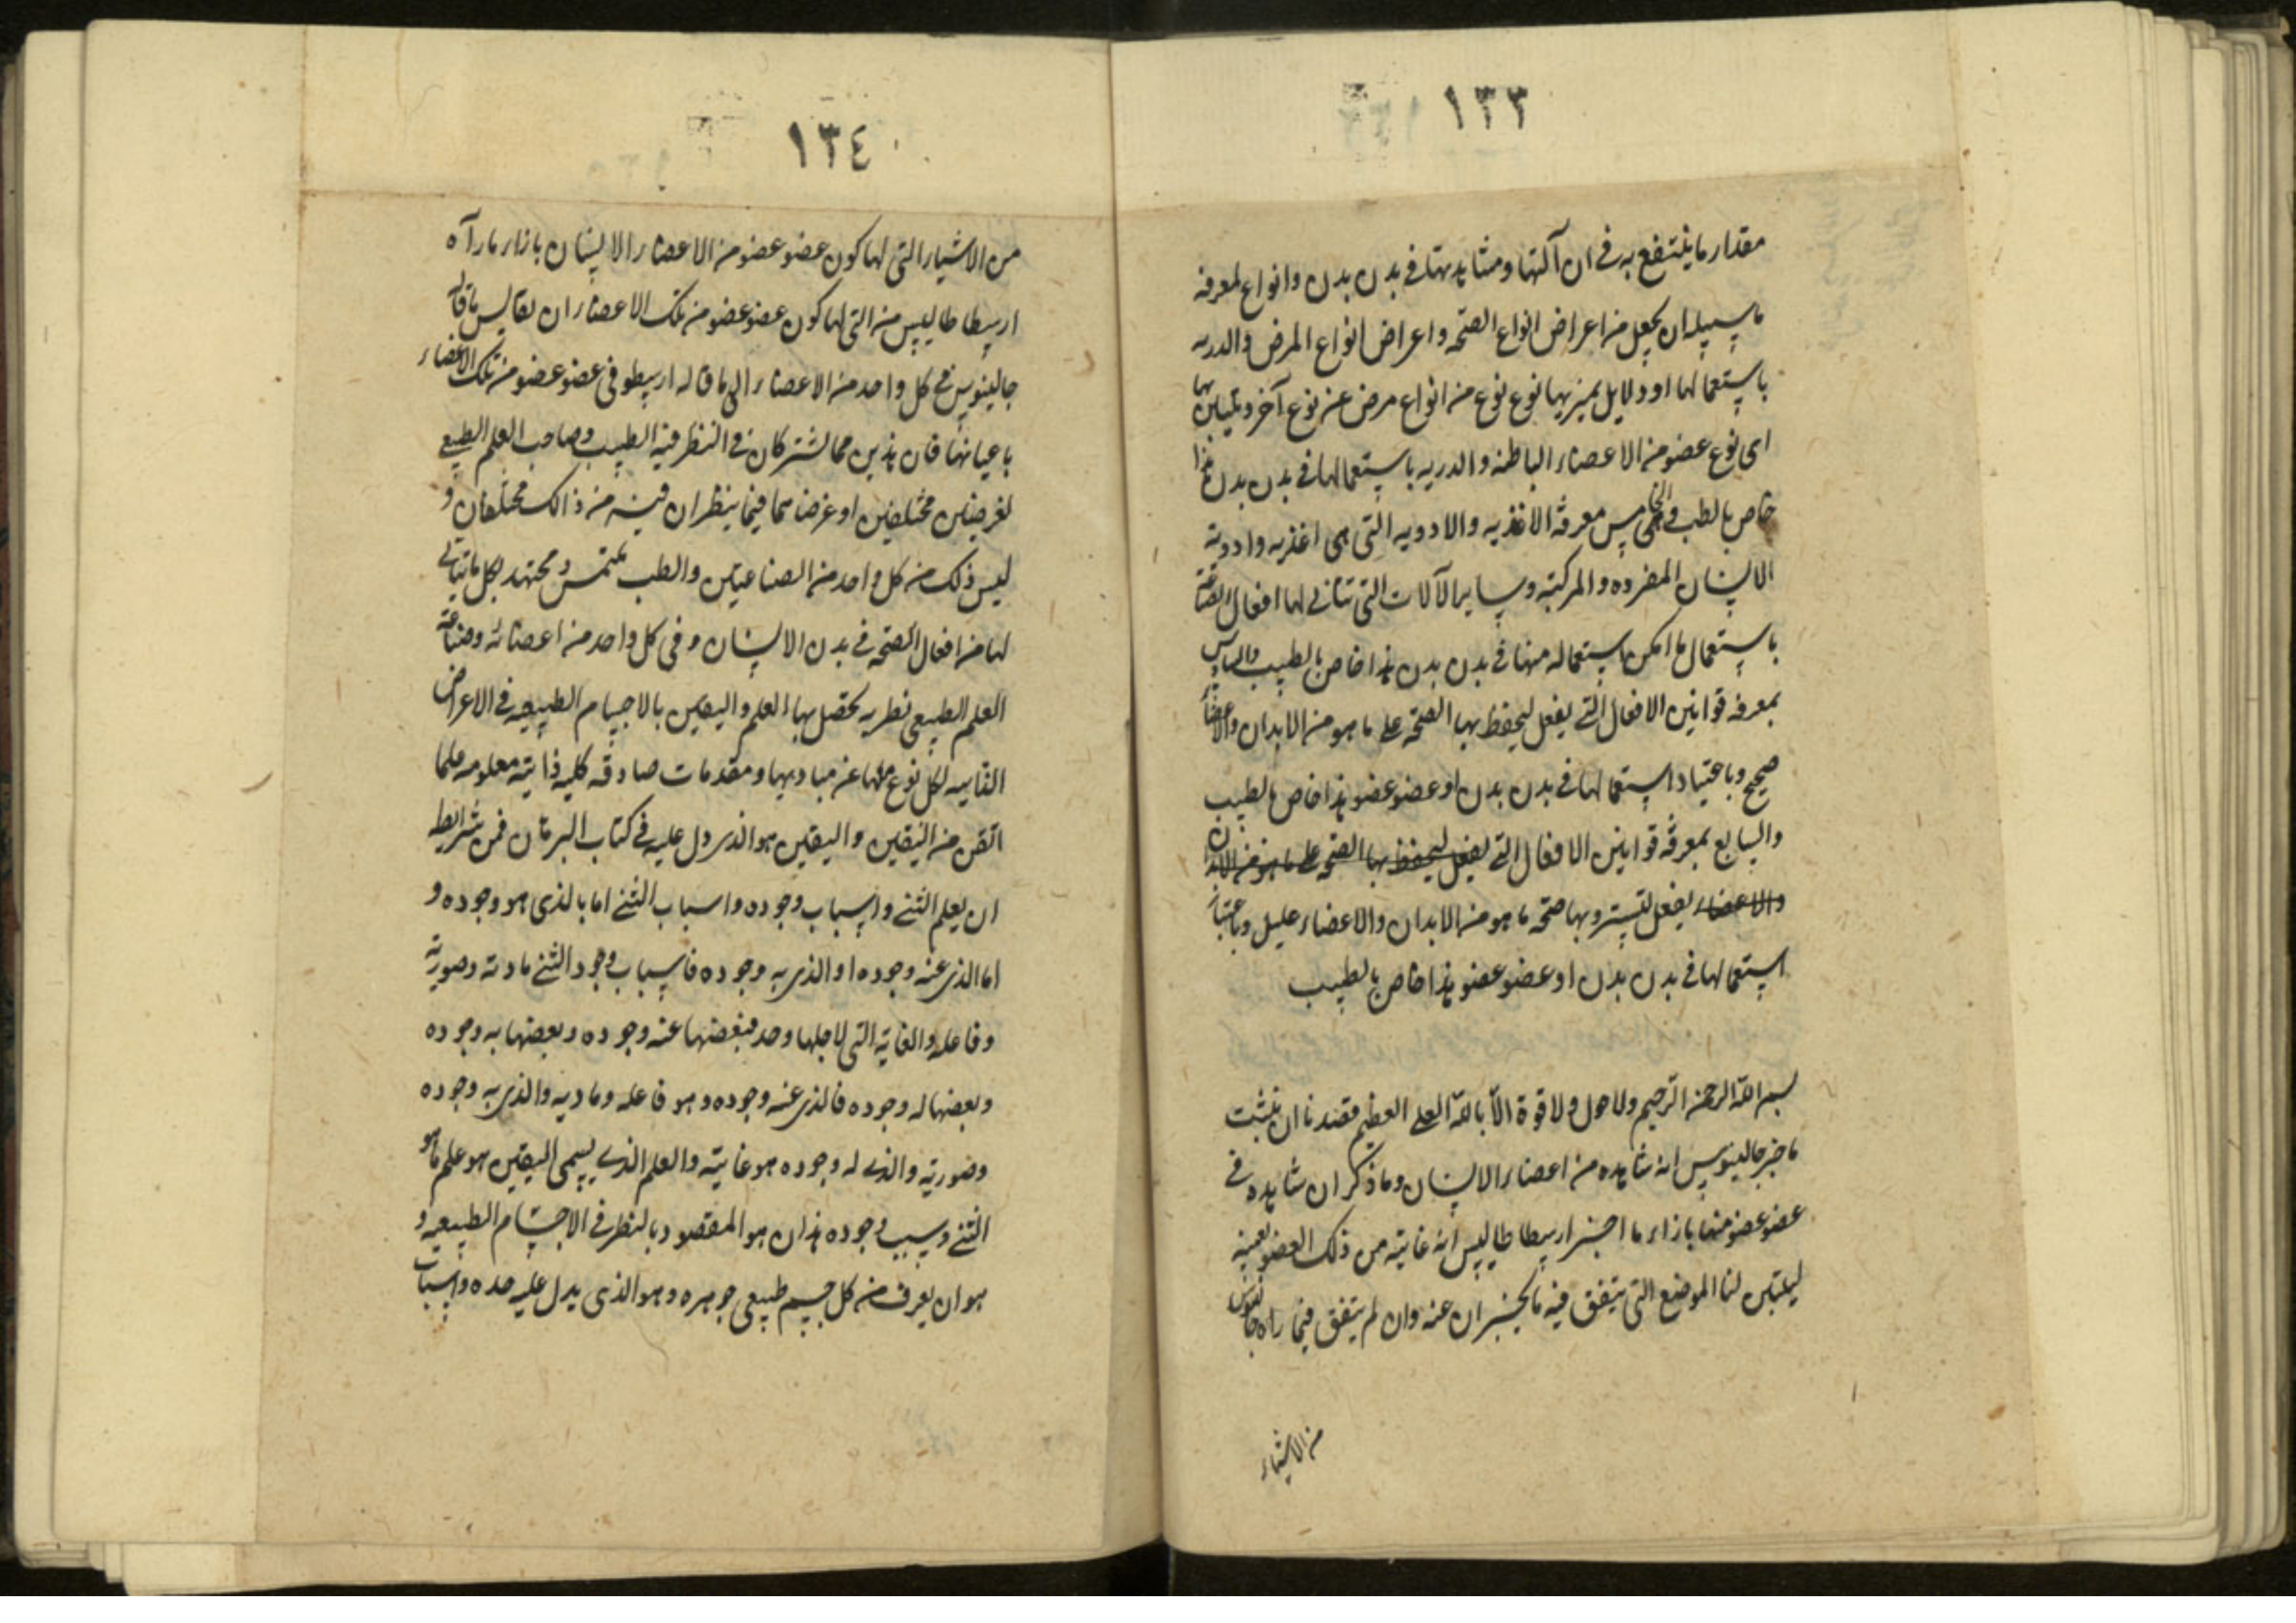 ١٣٣
مقدار ما ينتفع به في ان آلتها ومشاهدتها في بدن بدن وانواع لمعرفة
ما سبيله ان يجعل من اعراض انواع الصحة واعراض انواع المرض والدربه
باستعمالها او دلايل يميز بها نوع نوع من انواع مرض عن نوع آخر ويتباين بها
اى نوع عضو من الاعضاء الباطنه والدربه باستعمالها في بدن بدن هذا
خاص بالطب والخامس معرفة الاغذيه والادويه التى هى اغذيه وادوية
الانسان المفرده والمركبة وساير الآلات التى تتأتى لها افعال الصناعة
باستعمال ما امكن استعماله منها في بدن بدن هذا خاص بالطبيب والسادس
بمعرفة قوانين الافعال التى يفعل ليحفظ بها الصحة على ما هو من الابدان والاعضاء
صحيح وباعتياد استعمالها في بدن بدن او عضو عضو هذا خاص بالطبيب
والسابع بمعرفة قوانين الافعال التى يفعل ليحفظ بها الصحة على ما هو من الابدان
والاعضاء يفعل لتسترد بها صحة ما هو من الابدان والاعضاء عليل وباعتياد
استعمالها في بدن بدن او عضو عضو هذا خاص بالطبيب
بسم الله الرحمن الرحيم ولا حول ولا قوة الا بالله العلى العظيم قصدنا ان نثبت
ما خبر جالينوس انه شاهده من اعضاء الانسان وما ذكر ان شاهده في
عضو عضو منها بازاء ما اخبر ارسطاطاليس انه غايته من ذلك العضو بعينه
ليتبين لنا الموضع التى يتفق فيه ما يخبران عنه وان لم يتفق فيما راه جالينوس
من الاشياء
١٣٤
من الاشياء التى لها كون عضو عضو من الاعضاء الانسان بازاء ما رآه
ارسطاطاليس من التى لها كون عضو عضو من تلك الاعضاء ان نقايس ما قاله
جالينوس في كل واحد من الاعضاء الى ما قاله ارسطو في عضو عضو من تلك الاعضاء
باعيانها فان هذين مما يشتركان في النظر فيه الطبيب وصاحب العلم الطبيعى
لغرضين مختلفين او غرضا هما فيما ينظران فيه من ذالك مختلفان و
ليس ذلك من كل واحد من الصناعتين والطب يلتمس ومجتهد لكل ما يتأتى
لها من افعال الصحة في بدن الانسان وفى كل واحد من اعضائه وصناعة
العلم الطبيعى نظريه تحصل بها العلم واليقين بالاجسام الطبيعيه في الاعراض
القاسمه لكل نوع منها عن مباديها ومقدمات صادقه كليه ذاتية معلومه علما
اتقن من اليقين واليقين هو الذى دل عليه في كتاب البرهان فمن شرايطه
ان يعلم الشئ واسباب وجوده واسباب الشئ اما بالذى هو وجوده و
اما الذى عنه وجوده او الذى به وجوده فاسباب وجود الشئ مادته وصورته
وفاعله والغاية التى لاجلها وجد فبعضها عنه وجوده وبعضها به وجوده
وبعضها له وجوده فالذى عنه وجوده هو فاعله وماديه والذى به وجوده
وصورته والذى له وجوده هو غايته والعلم الذى يسمى اليقين هو علم ما هو
الشئ وسبب وجوده هذان هو المقصود بالنظر في الاجسام الطبيعيه و
هو ان يعرف من كل جسم طبيعى جوهره وهو الذى يدل عليه حده واسباب